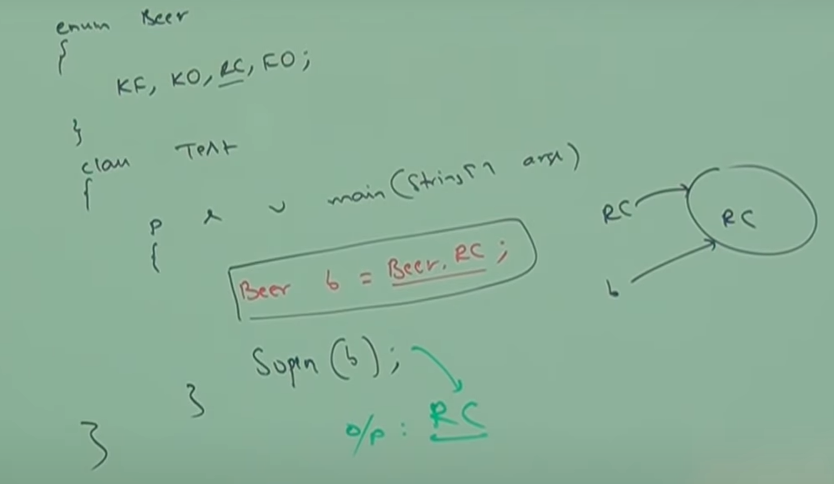 enum Beer
{
KF, KO, RC, FO;
}
class Test
{
p s v main(String[] args)
{
Beer b = Beer.RC;
Sopln(b);
o/p: RC
}
}
RC
RC
b